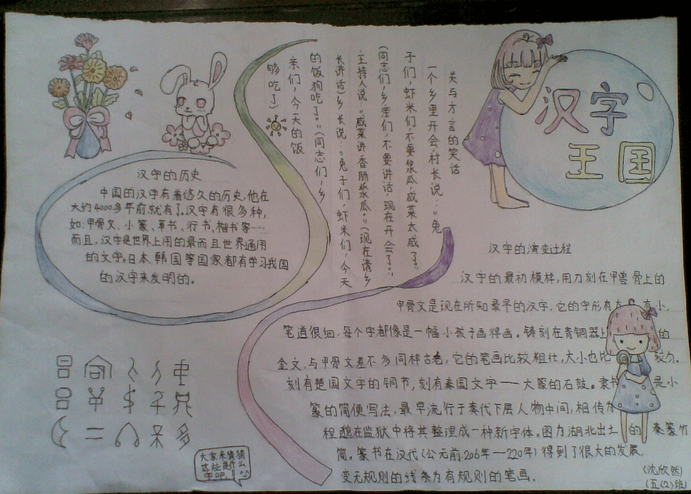 汉字
王国
汉字的历史
中国的汉字有着悠久的历史,他在
大约4000多年前就有了,汉字有很多种,
如:甲骨文、小篆、草书、行书、楷书等…
而且,汉字是世界上用的最而且世界通用
的文字,日本、韩国等国家都有学习我国
的汉字来发明的。
关与方言的笑话
一个乡里开会,村长说:“兔
子们,虾米们,不要浆瓜,咸菜太咸了”
(同志们,乡亲们,不要讲话,现在开会了)
主持人说“咸菜讲香肠浆瓜”(现在请乡
长讲话)乡长说:“兔子们,虾米们,今天
的饭狗吃了”(同志们,乡
亲们,今天的饭
够吃了)
汉字的演变过程
汉字的最初模样,用刀刻在甲兽骨上的
甲骨文是现在所知最早的汉字,它的字形有 小,
笔道很细,每个字都像是一幅小孩子画得画。铸刻在青铜器上 的
金文,与甲骨文差不多同样古老,它的笔画比较粗壮,大小也比
刻有楚国文字的铜节,刻有秦国文字——大篆的石鼓。隶书 是小
篆的简便写法,最早流行于秦代下层人物中间,相传
程邈在监狱中将其整理成一种新字体。图为湖北出土的 秦篆竹
简。隶书在汉代(公元前206年—220年)得到了很大的发展,
变无规则的线条为有规则的笔画。
大家来猜猜
这些是什么
字吧
(沈欣然)
(五(2)班)